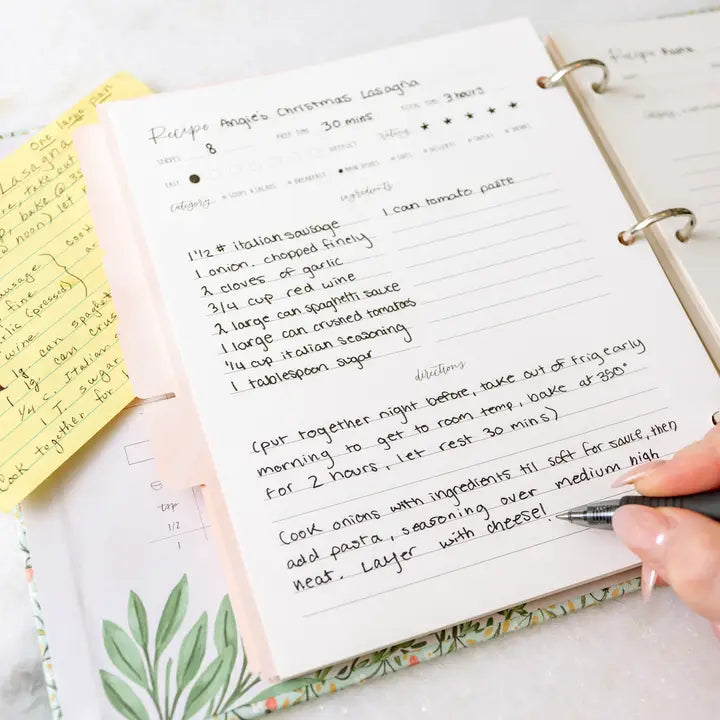 Recipe Angie's Christmas Lasagna
SERVES 8 PREP TIME 30 mins TOTAL TIME 3 hours
EASY DIFFICULT Rating ★ ★ ★ ★ ★
Category SOUPS & SALADS BREAKFAST MAIN DISHES SIDES DESSERTS DRINKS
ingredients
1 1/2 # italian sausage
1 onion. chopped finely
2 cloves of garlic
3/4 cup red wine
2 large can spaghetti sauce
1 large can crushed tomatoes
1/4 cup italian seasoning
1 tablespoon sugar
1 can tomato paste
directions
(put together night before, take out of frig early
morning to get to room temp, bake at 350°
for 2 hours, let rest 30 mins)
Cook onions with ingredients til soft for sauce, then
add pasta, seasoning over medium high
heat. Layer with cheese!
One large pan
Lasagna
take out
bake @ 3
noon) let
sausage
fine
(pressed)
wine
lg can spaghet
1 lg can crus
1/4 c. Italian
1 T. sugar
Cook together for
cook
top
1/2
1
Recipe